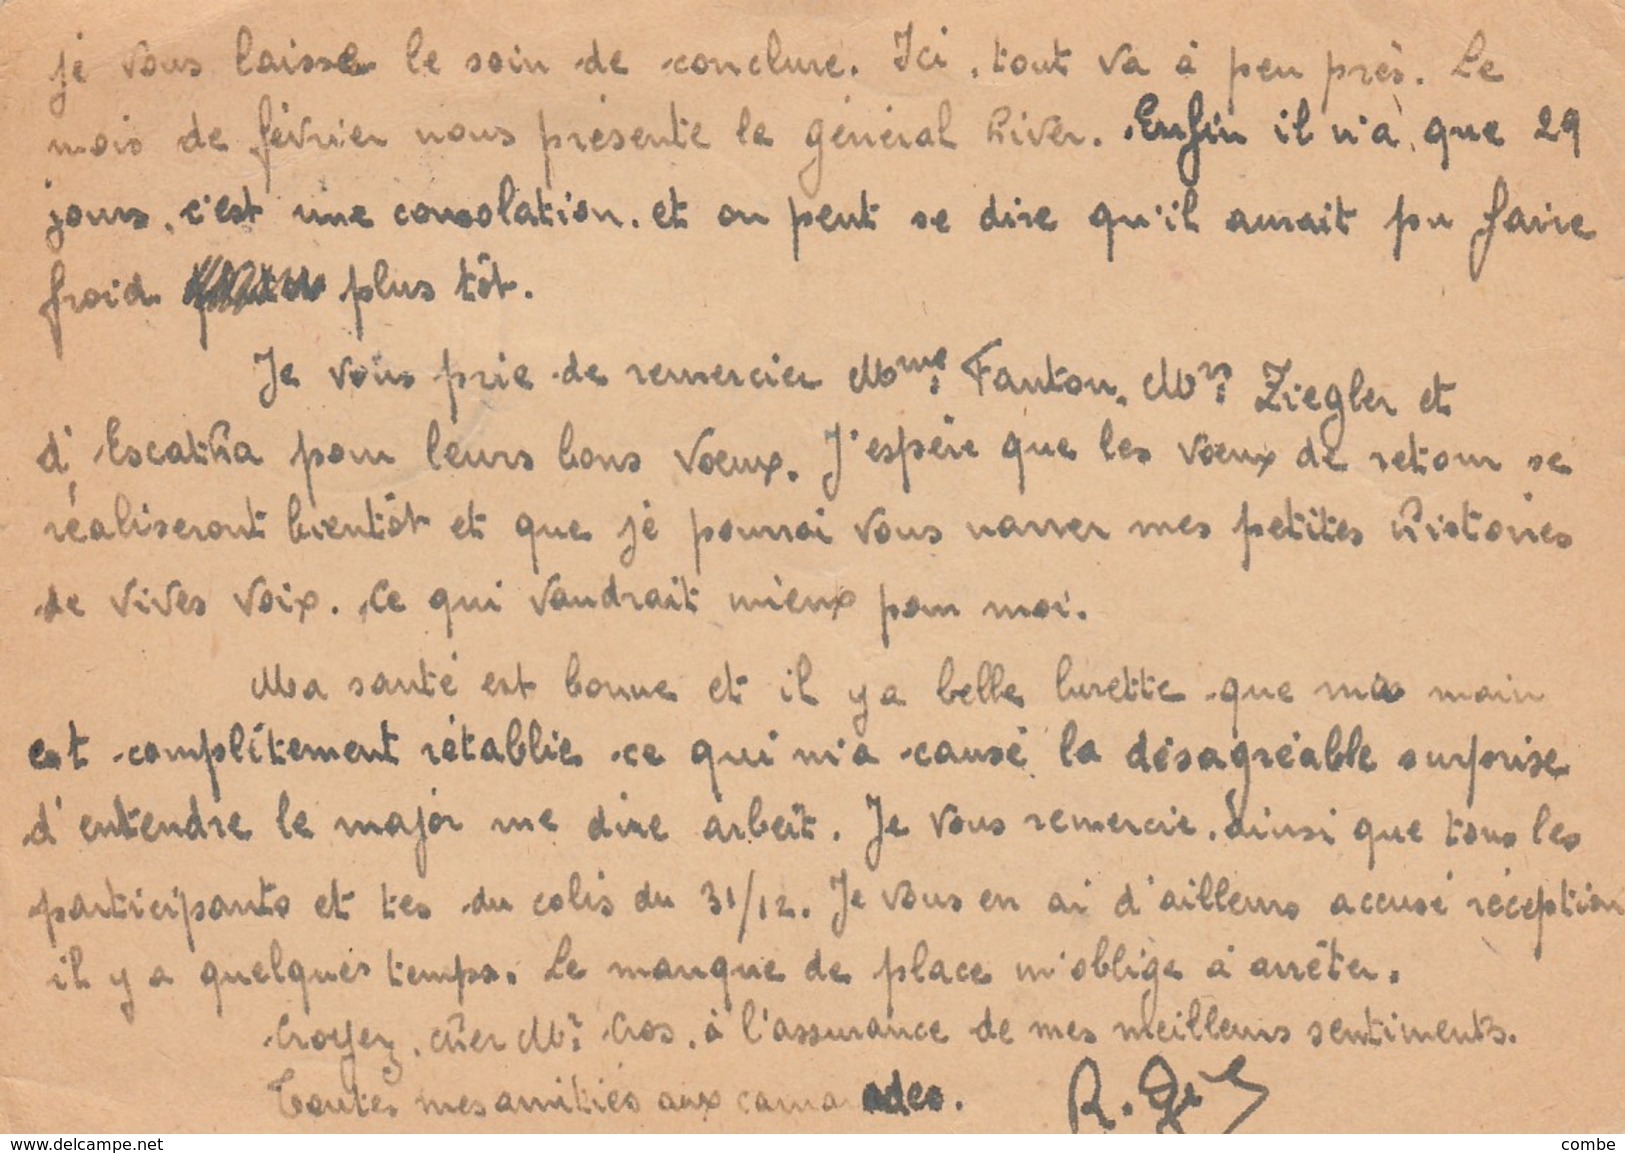 je vous laisse le soin de conclure. Ici, tout va à peu près. Le
mois de février nous présente le général hiver. Enfin il n'a que 29
jours, c'est une consolation. et on peut se dire qu'il aurait pu faire
froid plus tôt.
Je vous prie de remercier Mme Fanton, Mrs Ziegler et
d'Escatha pour leurs bons voeux. J'espère que les voeux de retour se
réaliseront bientôt et que je pourrai vous narrer mes petites histoires
de vives voix. Ce qui vaudrait mieux pour moi.
Ma santé est bonne et il y a belle lurette que ma main
est complètement rétablie ce qui m'a causé la désagréable surprise
d'entendre le major me dire arbeit. Je vous remercie, ainsi que tous les
participants et tes du colis du 31/12. Je vous en ai d'ailleurs accusé réception
il y a quelques temps. Le manque de place m'oblige à arrêter.
Croyez, cher Mr. Cros, à l'assurance de mes meilleurs sentiments.
Toutes mes amitiés aux camarades. R.
www.delcampe.net combe